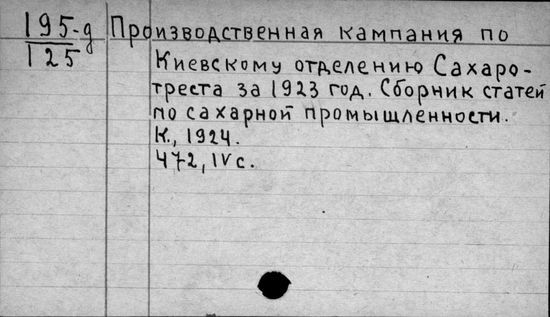 195-д
125
Производственная кампания по
Киевскому отделению Сахаро-
треста за 1923 год. Сборник статей
по сахарной промышленности.
К., 1924.
472, IV с.